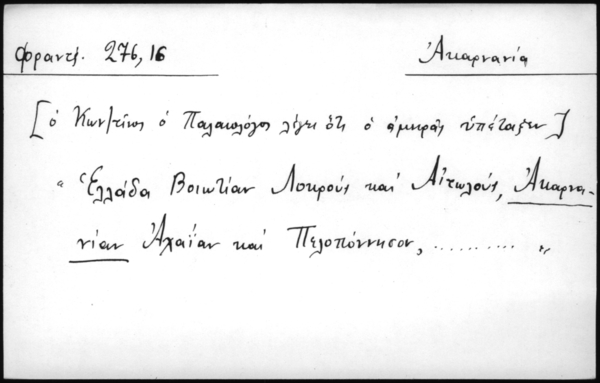 Φραντζ. 276,16 Ἀκαρνανία
[ὁ Κων/τῖνος ὁ Παλαιολόγος λέγει ὅτι ὁ ἀμηρᾶς ὑπέταξεν]
" Ἑλλάδα Βοιωτίαν Λοκροὺς καὶ Αἰτωλούς, Ἀκαρνα-
νίαν Ἀχαΐαν καὶ Πελοπόννησον, .......... "